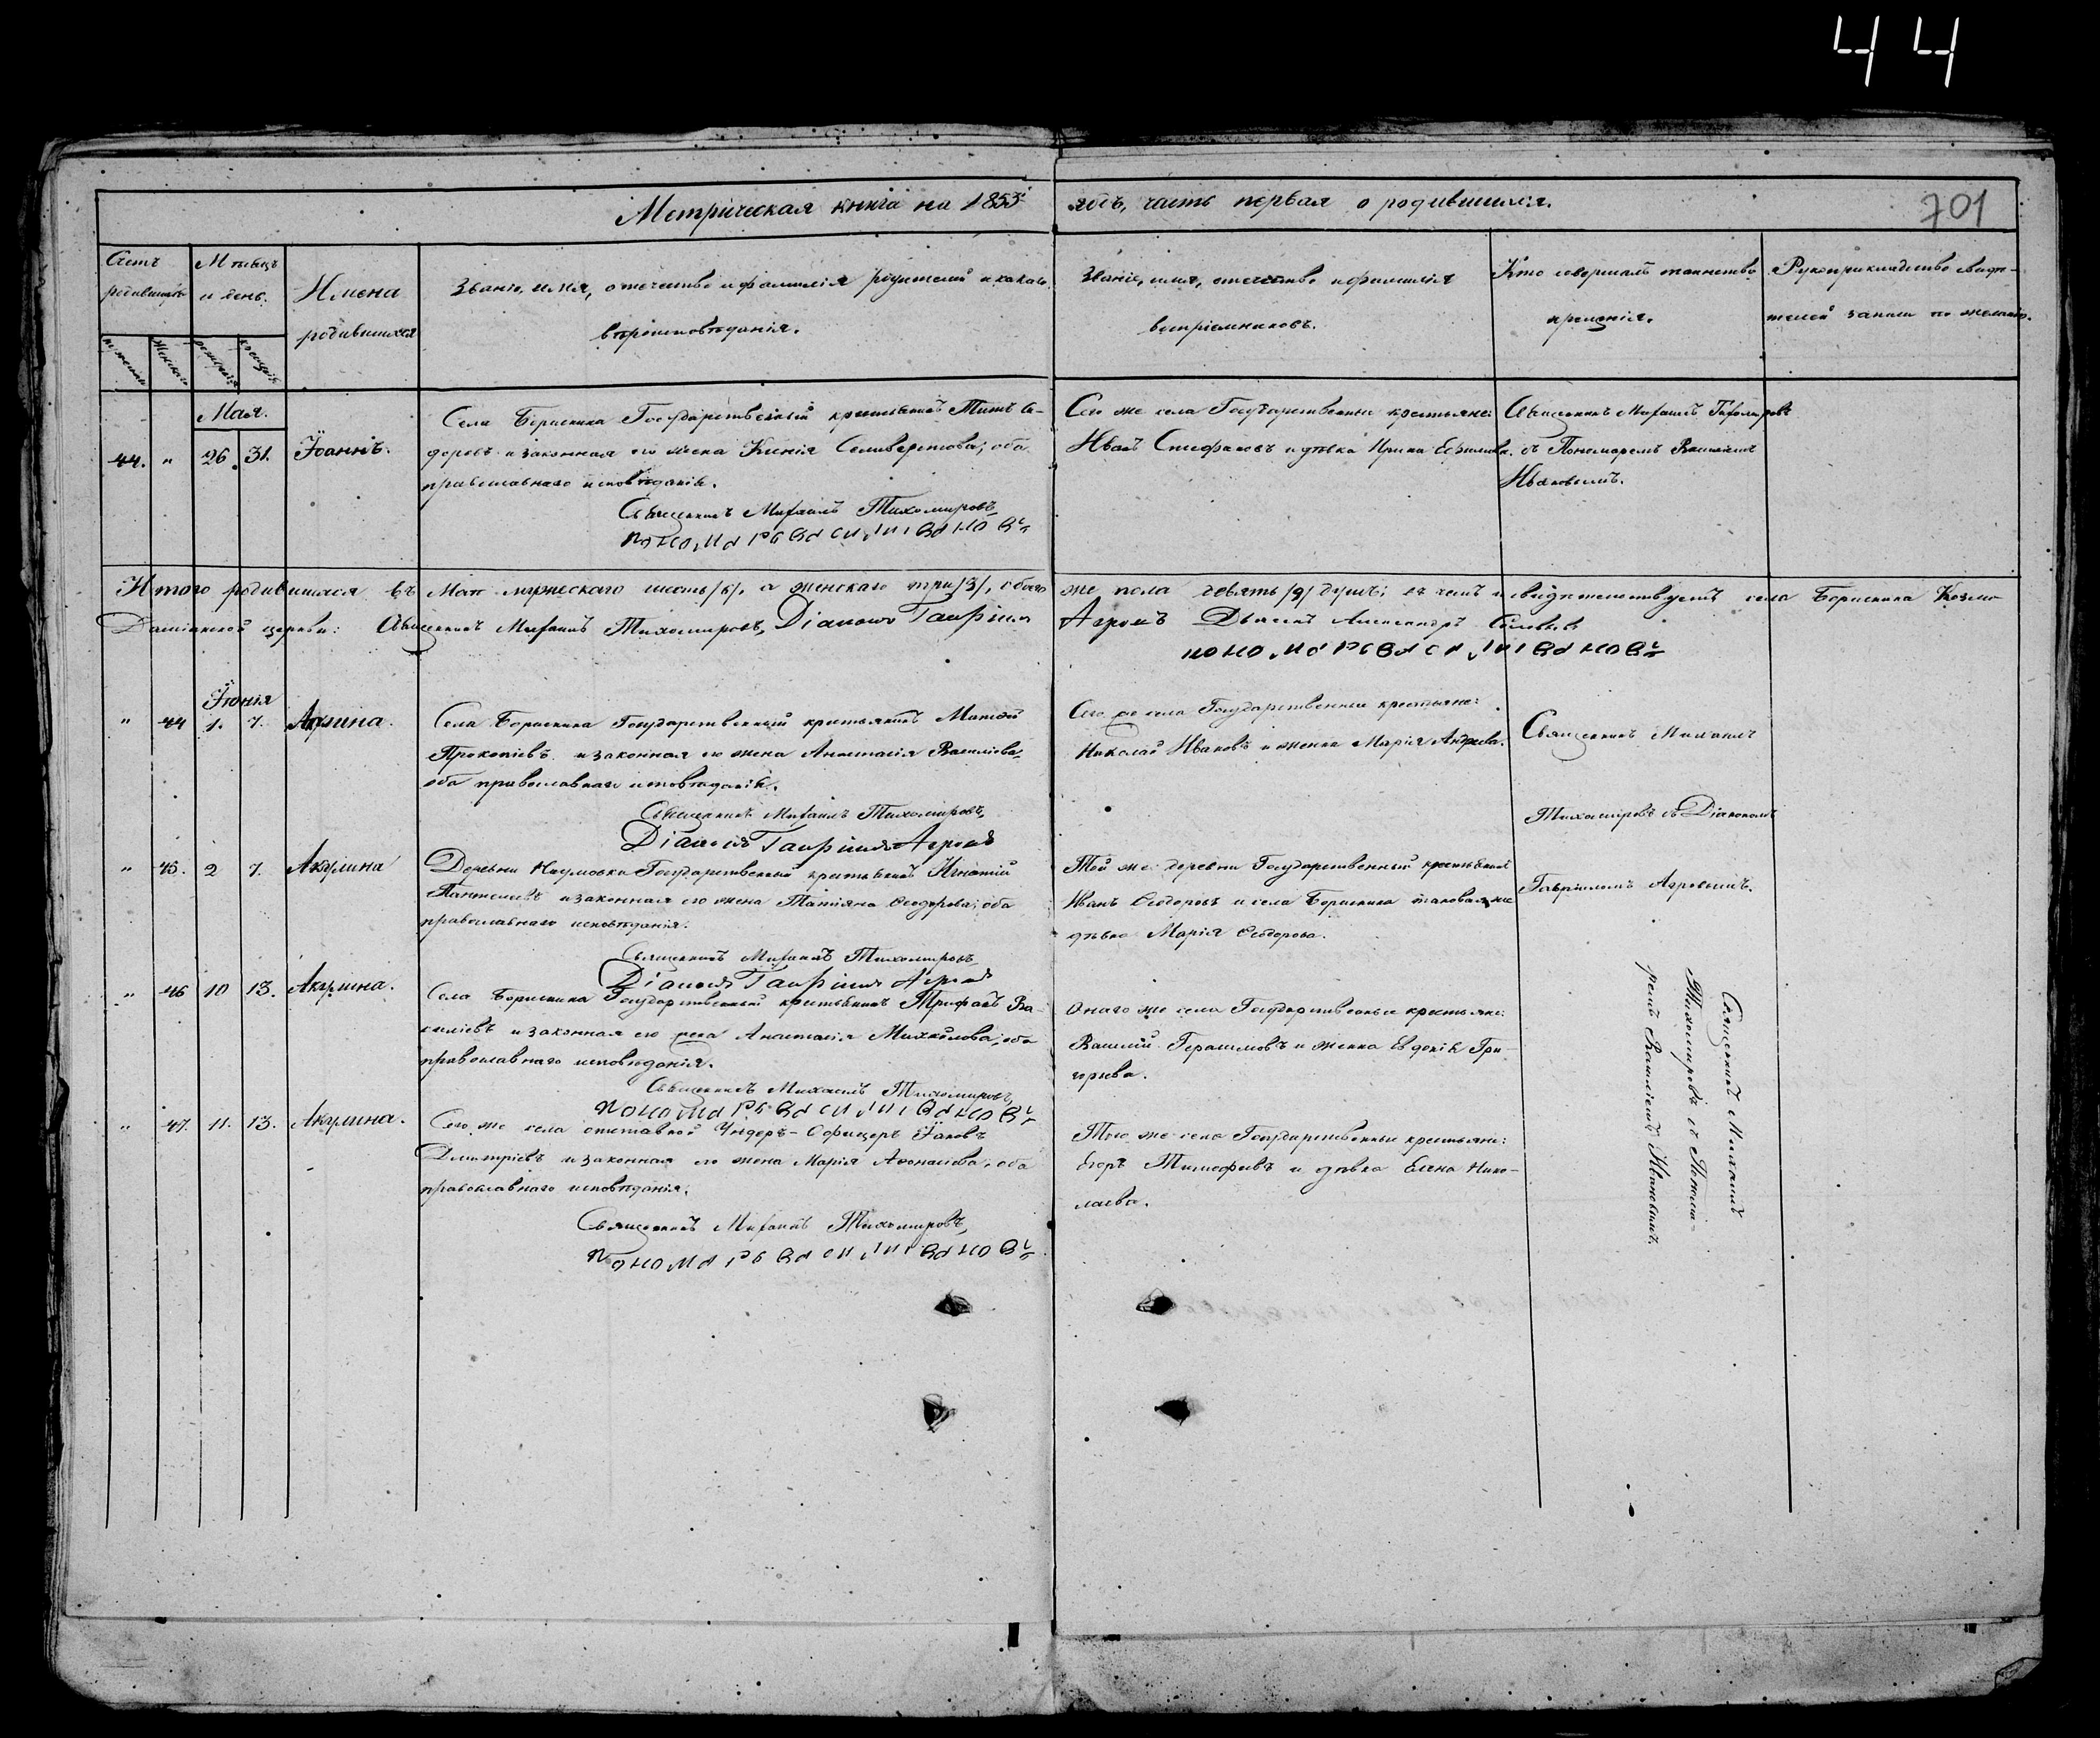 44
Метрическая книга на 1853й годъ, часть первая о родившихся.
701
Счетъ родившихся
Мѣсяцъ и день.
Имена родившихся
Званіе, имя, отечество и фамилія родителей и какого
вѣроисповѣданія.
Званіе, имя, отечество и фамилія
воспріемниковъ.
Кто совершалъ таинство
крещенія.
Рукоприкладство свидѣ-
телей записи по желанію.
Мая.
44. " 26. 31. Іоаннъ.
Села Борискина Государственный крестьянинъ Титъ Ѳе-
доровъ и законная его жена Ксенія Селиверстова; оба
православнаго исповѣданія.
Священникъ Михаилъ Тихомировъ,
пономарь Василій Ивановъ
Сего же села Государственные крестьяне:
Иванъ и дѣвка Ирина
Священникъ Михаилъ Тихомировъ
съ Пономаремъ Василіемъ
Ивановымъ.
Итого родившихся въ Маѣ мужескаго шесть /6/, а женскаго три /3/, обоего же пола девять /9/ душъ; въ чемъ и свидѣтельствуемъ села Борискина Козмо
Даміанской церкви: Священникъ Михаилъ Тихомировъ, Діаконъ Гавріилъ Агровъ Дьячекъ Александръ
пономарь Василій Ивановъ
Іюнія
" 44 1. 7. Акулина.
Села Борискина Государственный крестьянинъ Матвѣй
Прокопіевъ и законная его жена Анастасія Василіева,
оба православнаго исповѣданія.
Священникъ Михаилъ Тихомировъ,
Діаконъ Гавріилъ Агровъ
Сего же села Государственные крестьяне:
Николай Ивановъ и женка Марія Андреева.
Священникъ Михаилъ
Тихомировъ съ Діакономъ
Гавріиломъ Агровымъ.
" 45. 2 7. Акулина
Деревни Наумовки Государственный крестьянинъ Игнатій
Пантелеевъ и законная его жена Татіяна Ѳеодорова; оба
православнаго исповѣданія.
Священникъ Михаилъ Тихомировъ
Діаконъ Гавріилъ Агровъ
Той же деревни Государственный крестьянинъ
Иванъ Ѳеодоровъ и села Борискина таковая же
дѣвка Марія Ѳеодорова.
" 46 10 13. Акулина.
Села Борискина Государственный крестьянинъ Трифонъ Ва-
силіевъ и законная его жена Анастасія Михайлова; оба
православнаго исповѣданія.
Священникъ Михаилъ Тихомировъ,
пономарь Василій Ивановъ
Онаго же села Государственные крестьяне:
Василій Герасимовъ и женка Евдокія Гри-
горьева.
Священникъ Михаилъ
Тихомировъ съ Понома-
ремъ Василіемъ Ивановымъ.
" 47. 11. 13. Акулина.
Сего же села отставной Ундеръ-Офицеръ Іаковъ
Димитріевъ и законная его жена Марія Аѳонасіева; оба
православнаго исповѣданія.
Священникъ Михаилъ Тихомировъ,
пономарь Василій Ивановъ
Того же села Государственные крестьяне:
Егоръ Тимофеевъ и дѣвка Елена Нико-
лаева.